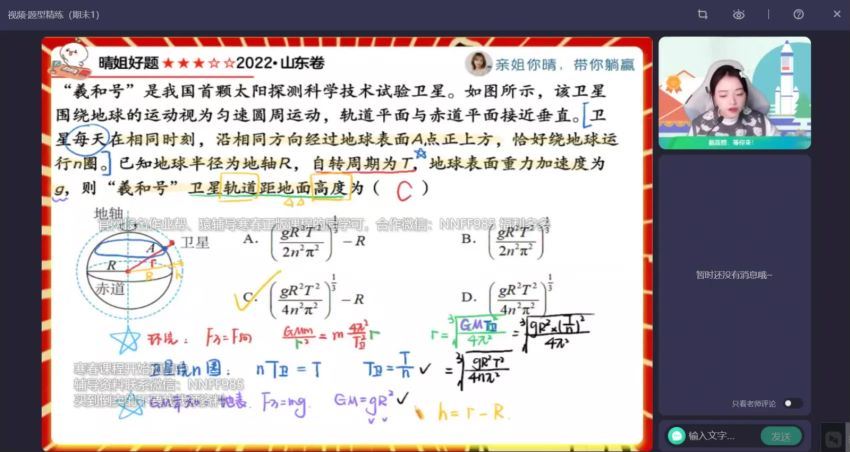 视频·题型精练（期末1）
晴姐好题★★★☆☆2022·山东卷
亲姐你晴，带你躺赢
“羲和号”是我国首颗太阳探测科学技术试验卫星。如图所示，该卫星
围绕地球的运动视为匀速圆周运动，轨道平面与赤道平面接近垂直。[卫
星每天在相同时刻，沿相同方向经过地球表面A点正上方，恰好绕地球运
行n圈。]已知地球半径为地轴R，自转周期为T，地球表面重力加速度为
g，则“羲和号”卫星轨道距地面高度为（ C ）
合作微信：NNFF985 福利多多
地轴
卫星
A
R
r
R
h
赤道
A. (gR²T²/2n²π²)^(1/3) − R
B. (gR²T²/2n²π²)^(1/3)
C. (gR²T²/4n²π²)^(1/3) − R
D. (gR²T²/4n²π²)^(1/3)
环绕：F万=F向 GMm/r² = m 4π²/T卫² r
r = ³√(GMT卫²/4π²) = ³√(gR²×(T/n)²/4π²)
卫星绕n圈： nT卫 = T T卫 = T/n ✓
= ³√(gR²T²/4n²π²)
寒春课程开始
辅导资料联系微信：NNFF985
地表 F万=mg. GM=gR² ✓
h = r − R.
暂时还没有消息哦~
只看老师评论
输入文字...
发送